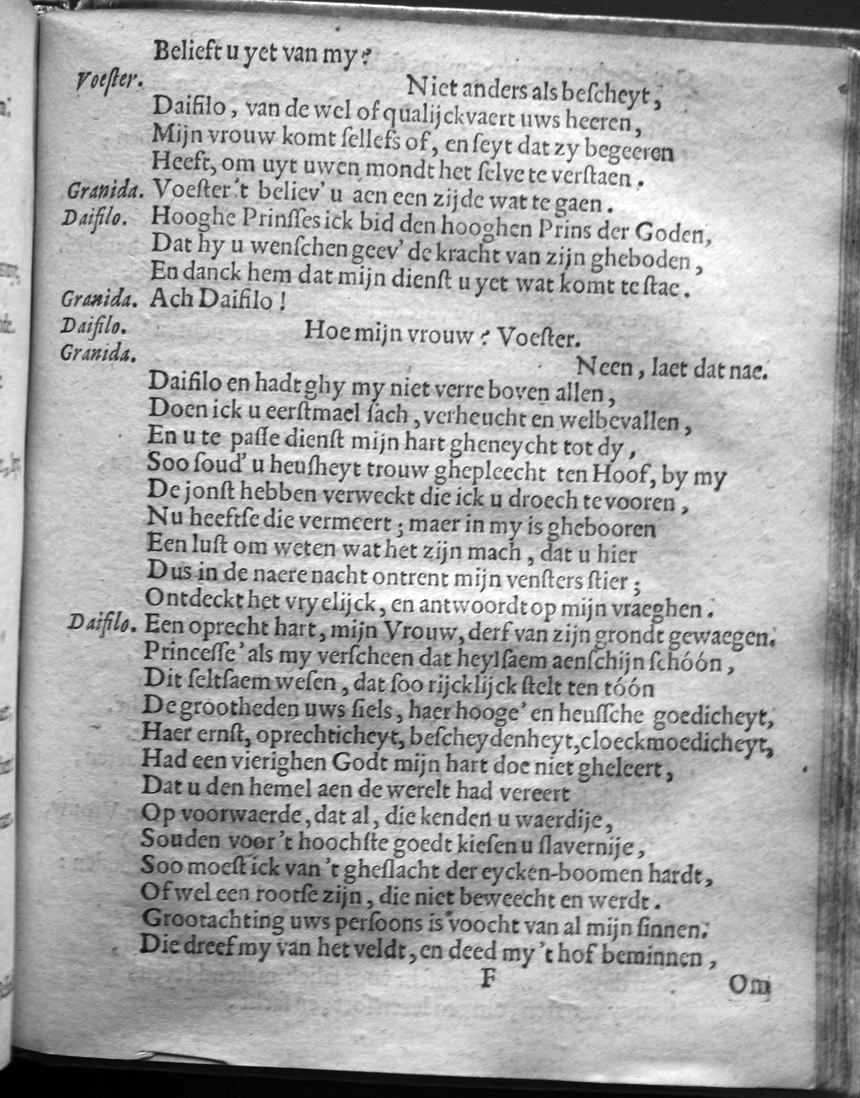 Belieft u yet van my?
Voeſter. Niet anders als beſcheyt,
Daifilo, van de wel of qualijckvaert uws heeren,
Mijn vrouw komt ſellefs of, en ſeyt dat zy begeeren
Heeft, om uyt uwen mondt het ſelve te verſtaen.
Granida. Voeſter 't believ' u aen een zijde wat te gaen.
Daifilo. Hooghe Prinſſes ick bid den hooghen Prins der Goden,
Dat hy u wenſchen geev' de kracht van zijn gheboden,
En danck hem dat mijn dienſt u yet wat komt te ſtae.
Granida. Ach Daifilo!
Daifilo. Hoe mijn vrouw? Voeſter.
Granida. Neen, laet dat nae.
Daifilo en hadt ghy my niet verre boven allen,
Doen ick u eerſtmael ſach, verheucht en welbevallen,
En u te paſſe dienſt mijn hart gheneycht tot dy,
Soo ſoud' u heuſheyt trouw ghepleecht ten Hoof, by my
De jonſt hebben verweckt die ick u droech te vooren,
Nu heeftſe die vermeert; maer in my is ghebooren
Een luſt om weten wat het zijn mach, dat u hier
Dus in de naere nacht ontrent mijn venſters ſtier;
Ontdeckt het vryelijck, en antwoordt op mijn vraeghen.
Daifilo. Een oprecht hart, mijn Vrouw, derf van zijn grondt gewaegen.
Princeſſe' als my verſcheen dat heylſaem aenſchijn ſchóón,
Dit ſeltſaem weſen, dat ſoo rijcklijck ſtelt ten tóón
De grootheden uws ſiels, haer hooge' en heuſſche goedicheyt,
Haer ernſt, oprechticheyt, beſcheydenheyt, cloeckmoedicheyt,
Had een vierighen Godt mijn hart doe niet gheleert,
Dat u den hemel aen de werelt had vereert
Op voorwaerde, dat al, die kenden u waerdije,
Souden voor 't hoochſte goedt kieſen u ſlavernije,
Soo moeſt ick van 't gheſlacht der eycken-boomen hardt,
Of wel een rootſe zijn, die niet beweecht en werdt.
Grootachting uws perſoons is voocht van al mijn ſinnen.
Die dreef my van het veldt, en deed my 't hof beminnen,
F Om